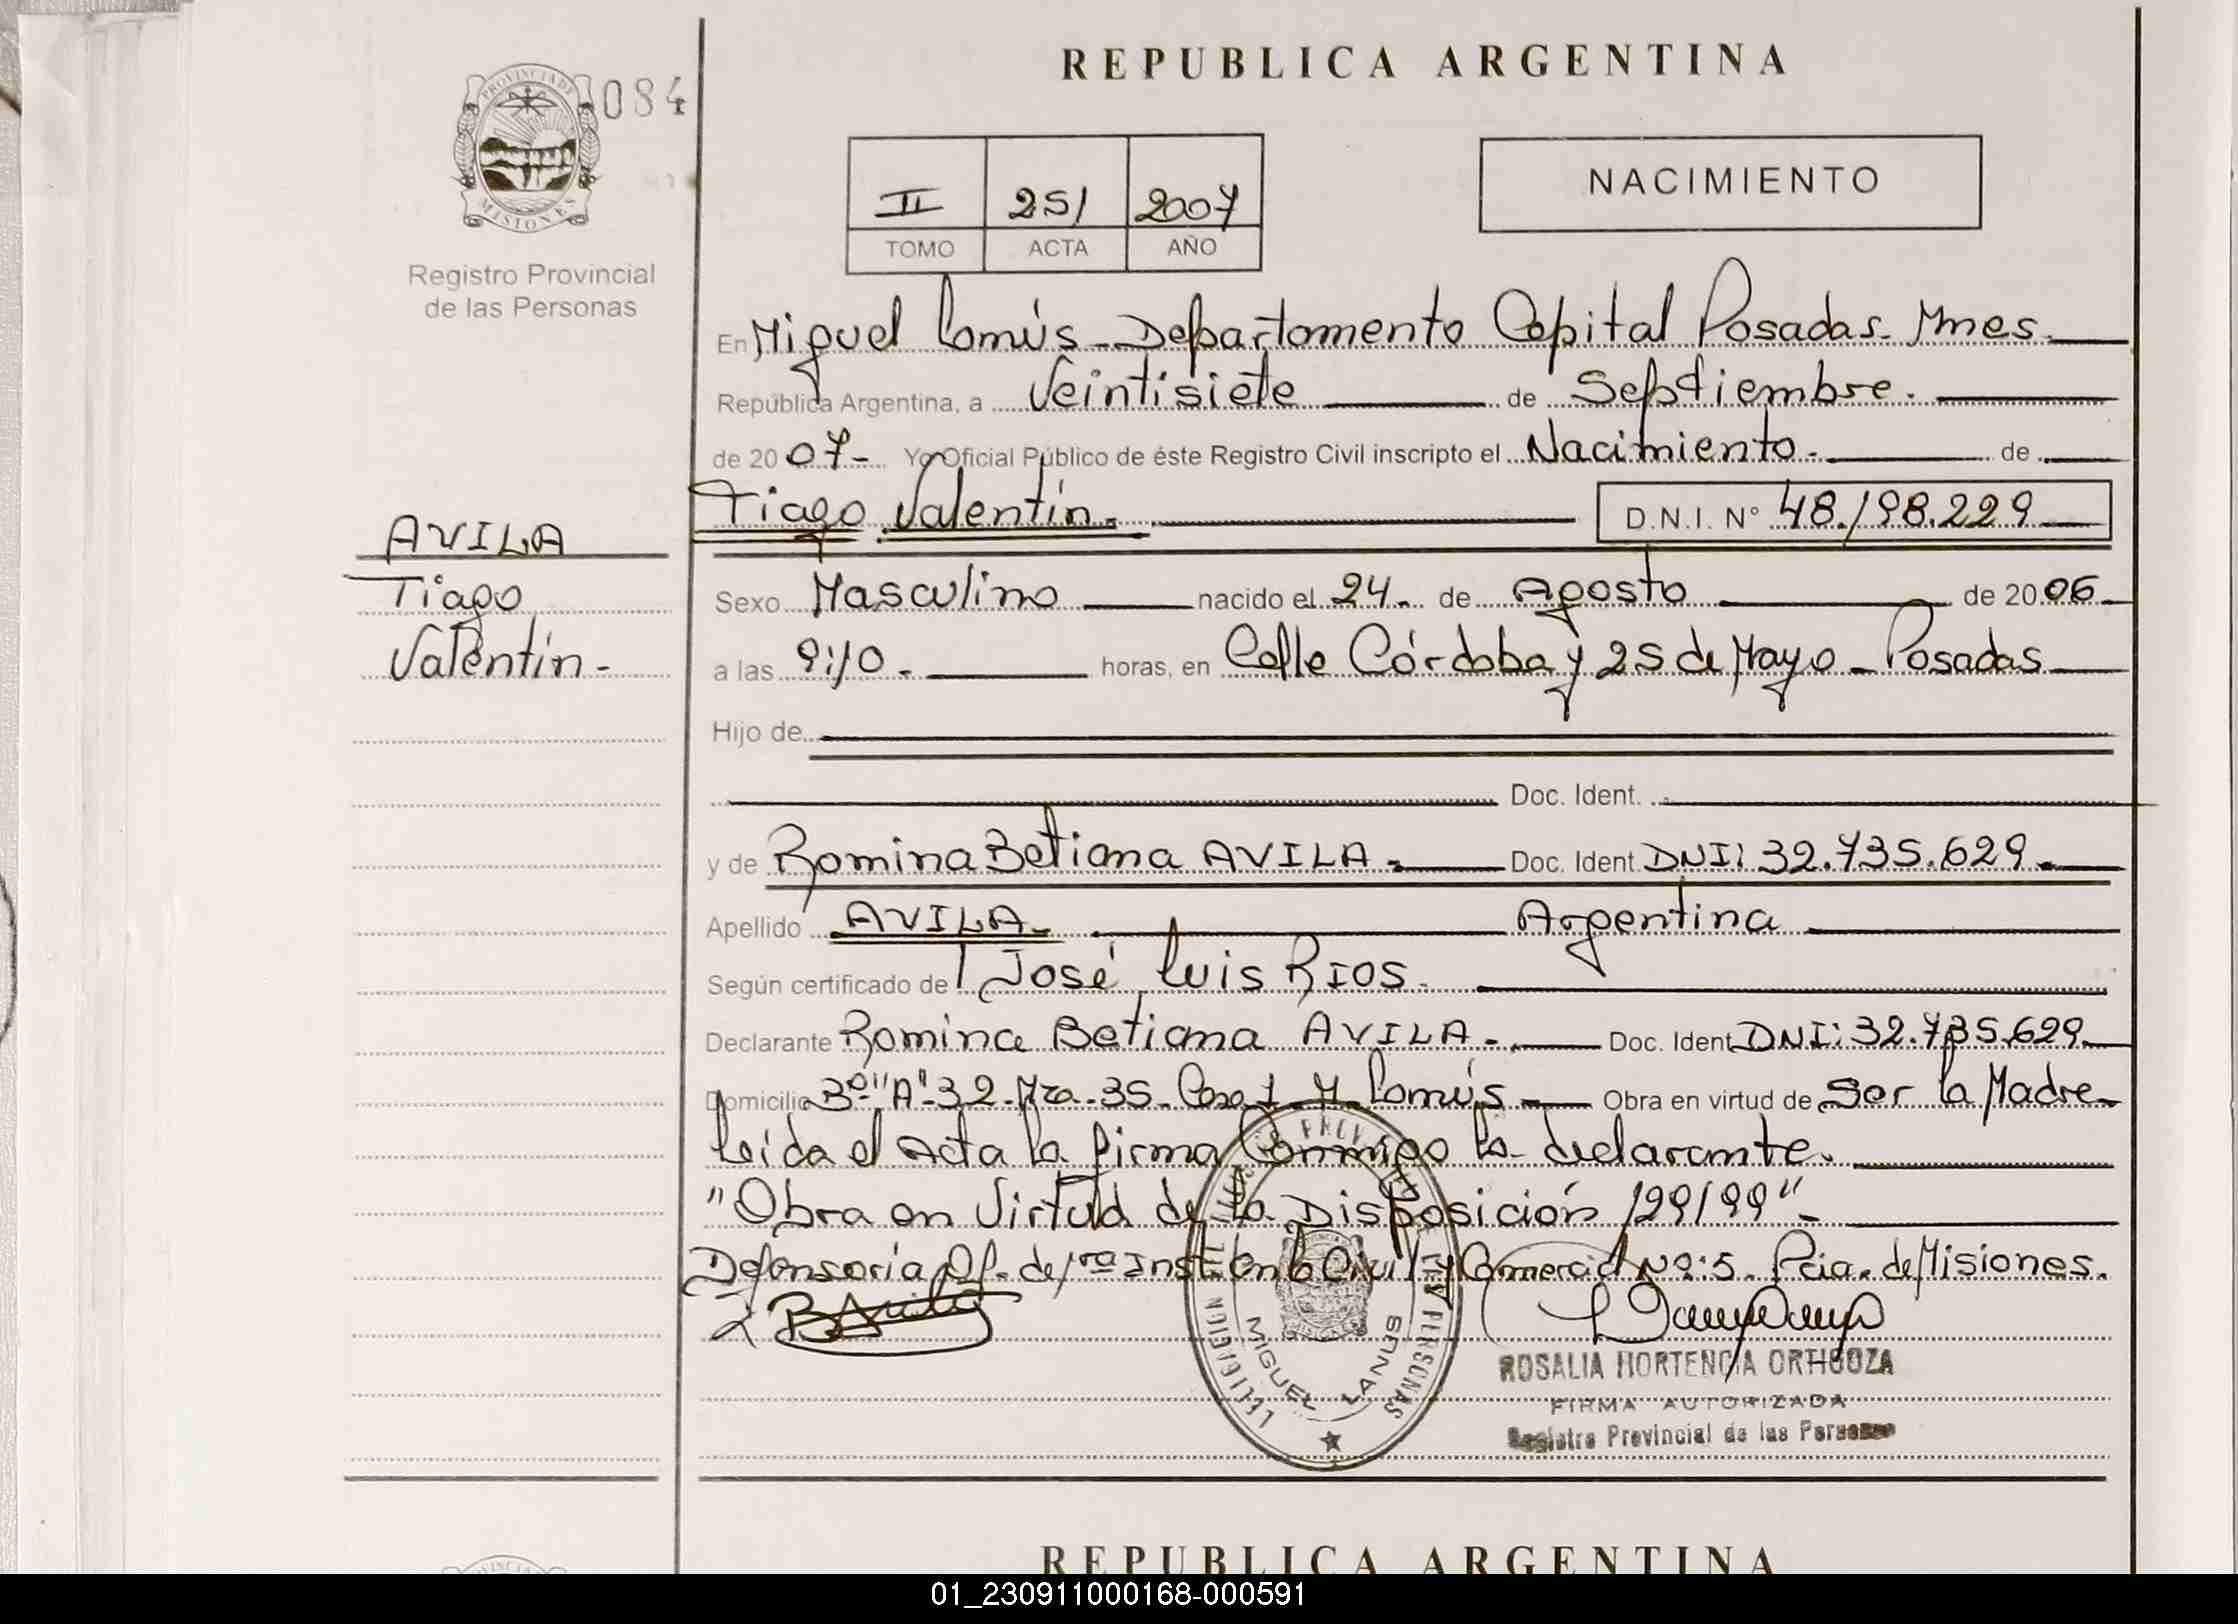 REPUBLICA ARGENTINA
PROVINCIA DE
MISIONES
084
Registro Provincial
de las Personas
II 251 2007
TOMO ACTA AÑO
NACIMIENTO
En Miguel Lanús - Departamento Capital Posadas. Mnes.
República Argentina, a Veintisiete de Septiembre.
de 2007- Yo Oficial Público de éste Registro Civil inscripto el Nacimiento. de
Tiago Valentín. D.N.I. N° 48.198.229
AVILA
Tiago
Valentín-
Sexo Masculino nacido el 24. de Agosto de 2006
a las 9:10. horas, en Calle Córdoba y 25 de Mayo - Posadas
Hijo de
Doc. Ident.
y de Romina Betiana AVILA. Doc. Ident. DNI: 32.735.629.
Apellido AVILA. Argentina
Según certificado de José Luis RIOS.
Declarante Romina Betiana AVILA. Doc. Ident. DNI: 32.735.629.
Domicilio B° "A"-32-Mza-35-Casa 1-M. Lanús Obra en virtud de Ser la Madre
Leída el Acta la firma Conmigo la declarante.
"Obra en Virtud de la Disposición 129/99"
Defensoría Of. de 1ra Inst. en lo Civil y Comercial Nº:5. Pcia. de Misiones.
MIGUEL LANUS
ROSALIA HORTENCIA ORTIGOZA
FIRMA AUTORIZADA
Registro Provincial de las Personas
REPUBLICA ARGENTINA
01_230911000168-000591